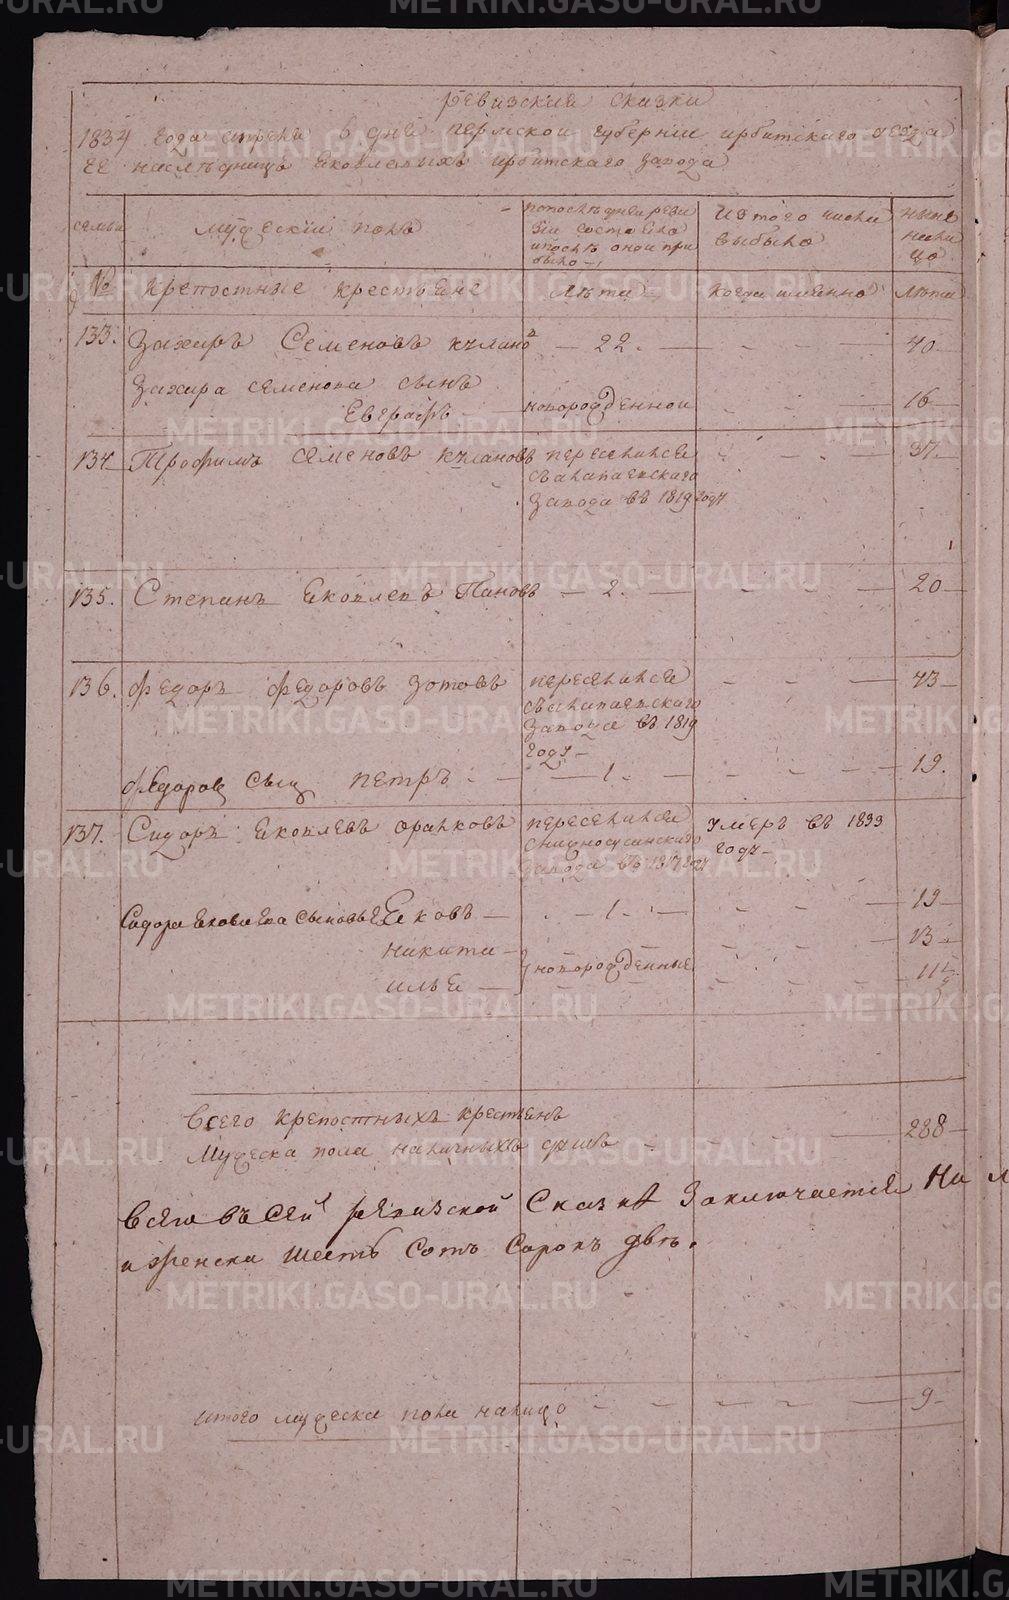 METRIKI.GASO-URAL.RU
Ревизския сказки
1834 года апреля в дня пермской губернии ирбитскаго уезда
наследницъ Яковлевыхъ ирбитскаго завода
семьи
мужескій полъ
по последней реви
зіи состояло
и после оной при
было
Изъ того числа
выбыло
ныне
на ли
цо
№
крепостные крестьяне
лета
когда именно
лета
133. Захаръ Семеновъ — 22. — 40
Захара семенова сынъ
Евграфъ новорожденной 16
134 Трофимъ семеновъ переселился 37.
съ алапаевскаго
завода въ 1819 году
135. Степанъ Яковлевъ Пановъ — 2. — 20
136. Федоръ Федоровъ Зотовъ переселился 43
съ алапаевскаго
завода въ 1819
году
Федоров сын Петръ — 1. — 19.
137. Сидоръ Яковлевъ переселился умеръ въ 1833
году
завода въ 1817 году
Сидора Яковлева сыновья Яковъ — 1. — 19
никита 13
новорожденные
илья 11
Всего крепостныхъ крестьянъ
Мужеска пола наличныхъ душъ — 288
Всего въ сей ревизской Сказке Заключается На
и женска шесть Сотъ Сорокъ две.
итого мужеска пола налицо — 9